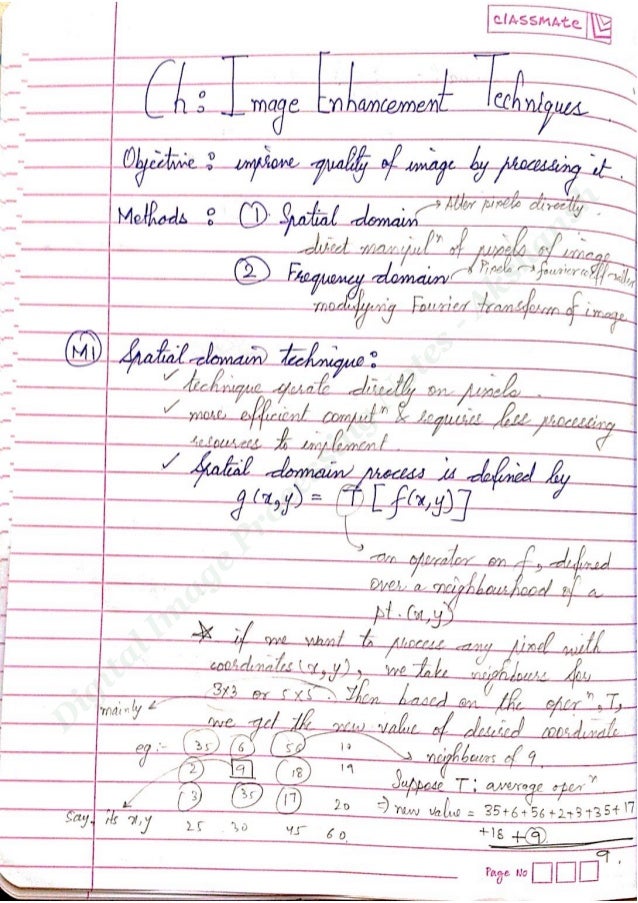 classmate
Ch: Image Enhancement Techniques
Objective: improve quality of image by processing it.
Methods: ① Spatial domain → Alter pixels directly.
direct manipulⁿ of pixels of image
② Frequency domain → Pixels → fourier coeff → alter
modifying Fourier transform of image
M1 Spatial domain technique:
✓ technique operate directly on pixels.
✓ more efficient computⁿ & requires less processing
resources to implement.
✓ Spatial domain process is defined by
g(x,y) = T [f(x,y)]
→ an operator on f, defined
over a neighbourhood of a
pt. (x,y)
* if we want to process any pixel with
coordinates (x,y), we take neighbours for
3x3 or 5x5. Then based on the operⁿ, T,
mainly
we get the new value of desired coordinate
eg:- 35 6 56 10 → neighbours of 9.
2 9 18 19 Suppose T: average operⁿ
3 35 17 20 ⇒ new value = 35+6+56+2+3+35+17
Say, its x,y 25 30 45 60 +18 +9
9.
Page No
Digital Image Processing Notes -